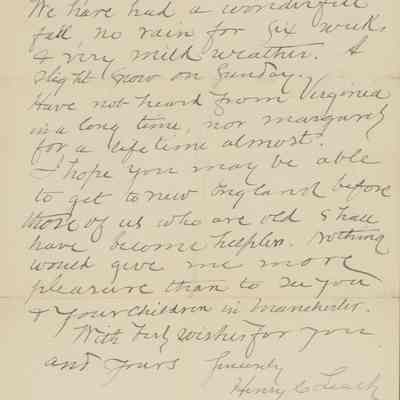 We have had a wonderful
fall no rain for six weeks
& very mild weather. A
slight snow on Sunday.
Have not heard from Virginia
in a long time, nor Margaret
for a lifetime almost.
I hope you may be able
to get to New England before
those of us who are old shall
have become helpless. Nothing
would give me more
pleasure than to see you
& your children in Manchester.
With best wishes for you
and yours Sincerely
Henry C Leach